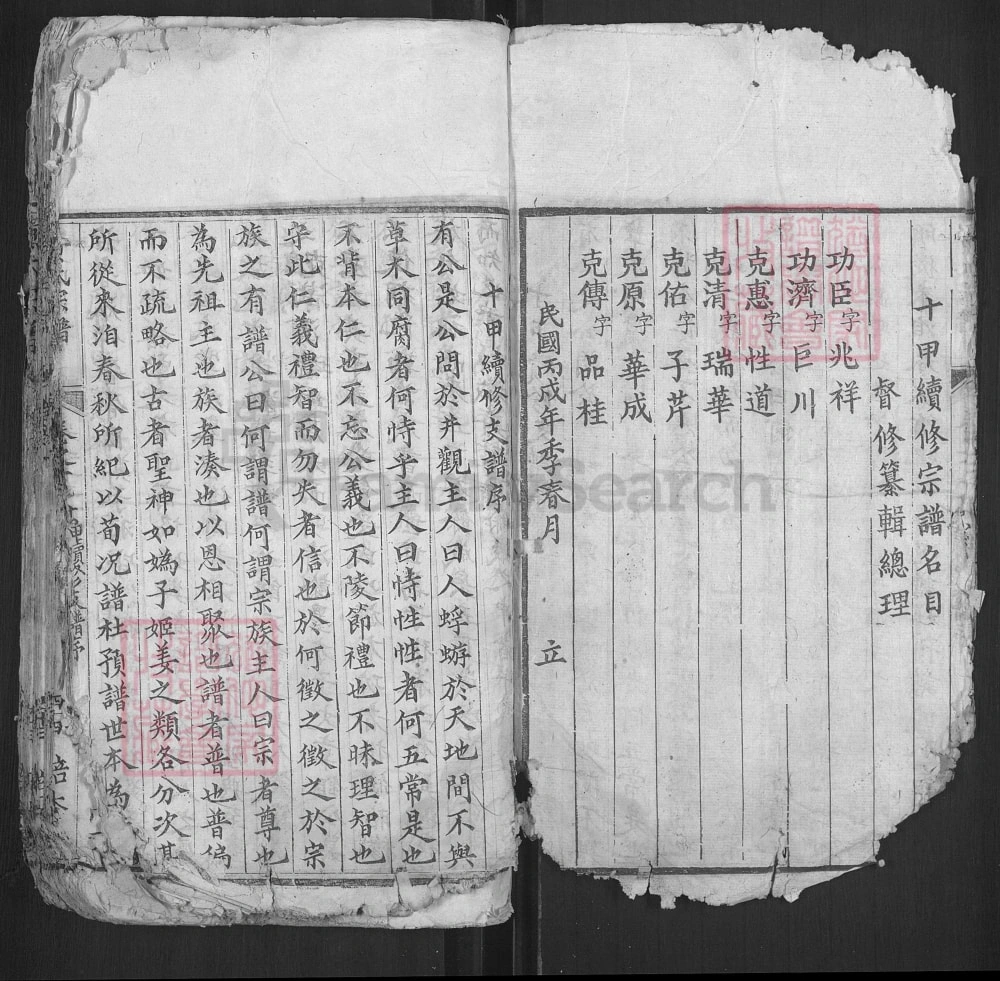 十甲續修宗譜名目
督修纂輯總理
功臣字兆祥
功濟字巨川
克惠字性道
克清字瑞華
克佑字子芹
克原字華成
克傳字品桂
民國丙戌年季春月 立
十甲續修支譜序
有公是公問於井觀主人曰人蜉蝣於天地間不與
草木同腐者何恃乎主人曰恃性性者何五常是也
不背本仁也不忘公義也不陵節禮也不昧理智也
守此仁義禮智而勿失者信也於何徵之徵之於宗
族之有譜公曰何謂譜何謂宗族主人曰宗者尊也
為先祖主也族者湊也以恩相聚也譜者普也普徧
而不疏略也古者聖神如媯子姬姜之類各分次其
所從來洎春秋所紀以荀况譜杜預譜世本為
氏宗譜
十甲續修支譜序
FamilySearch